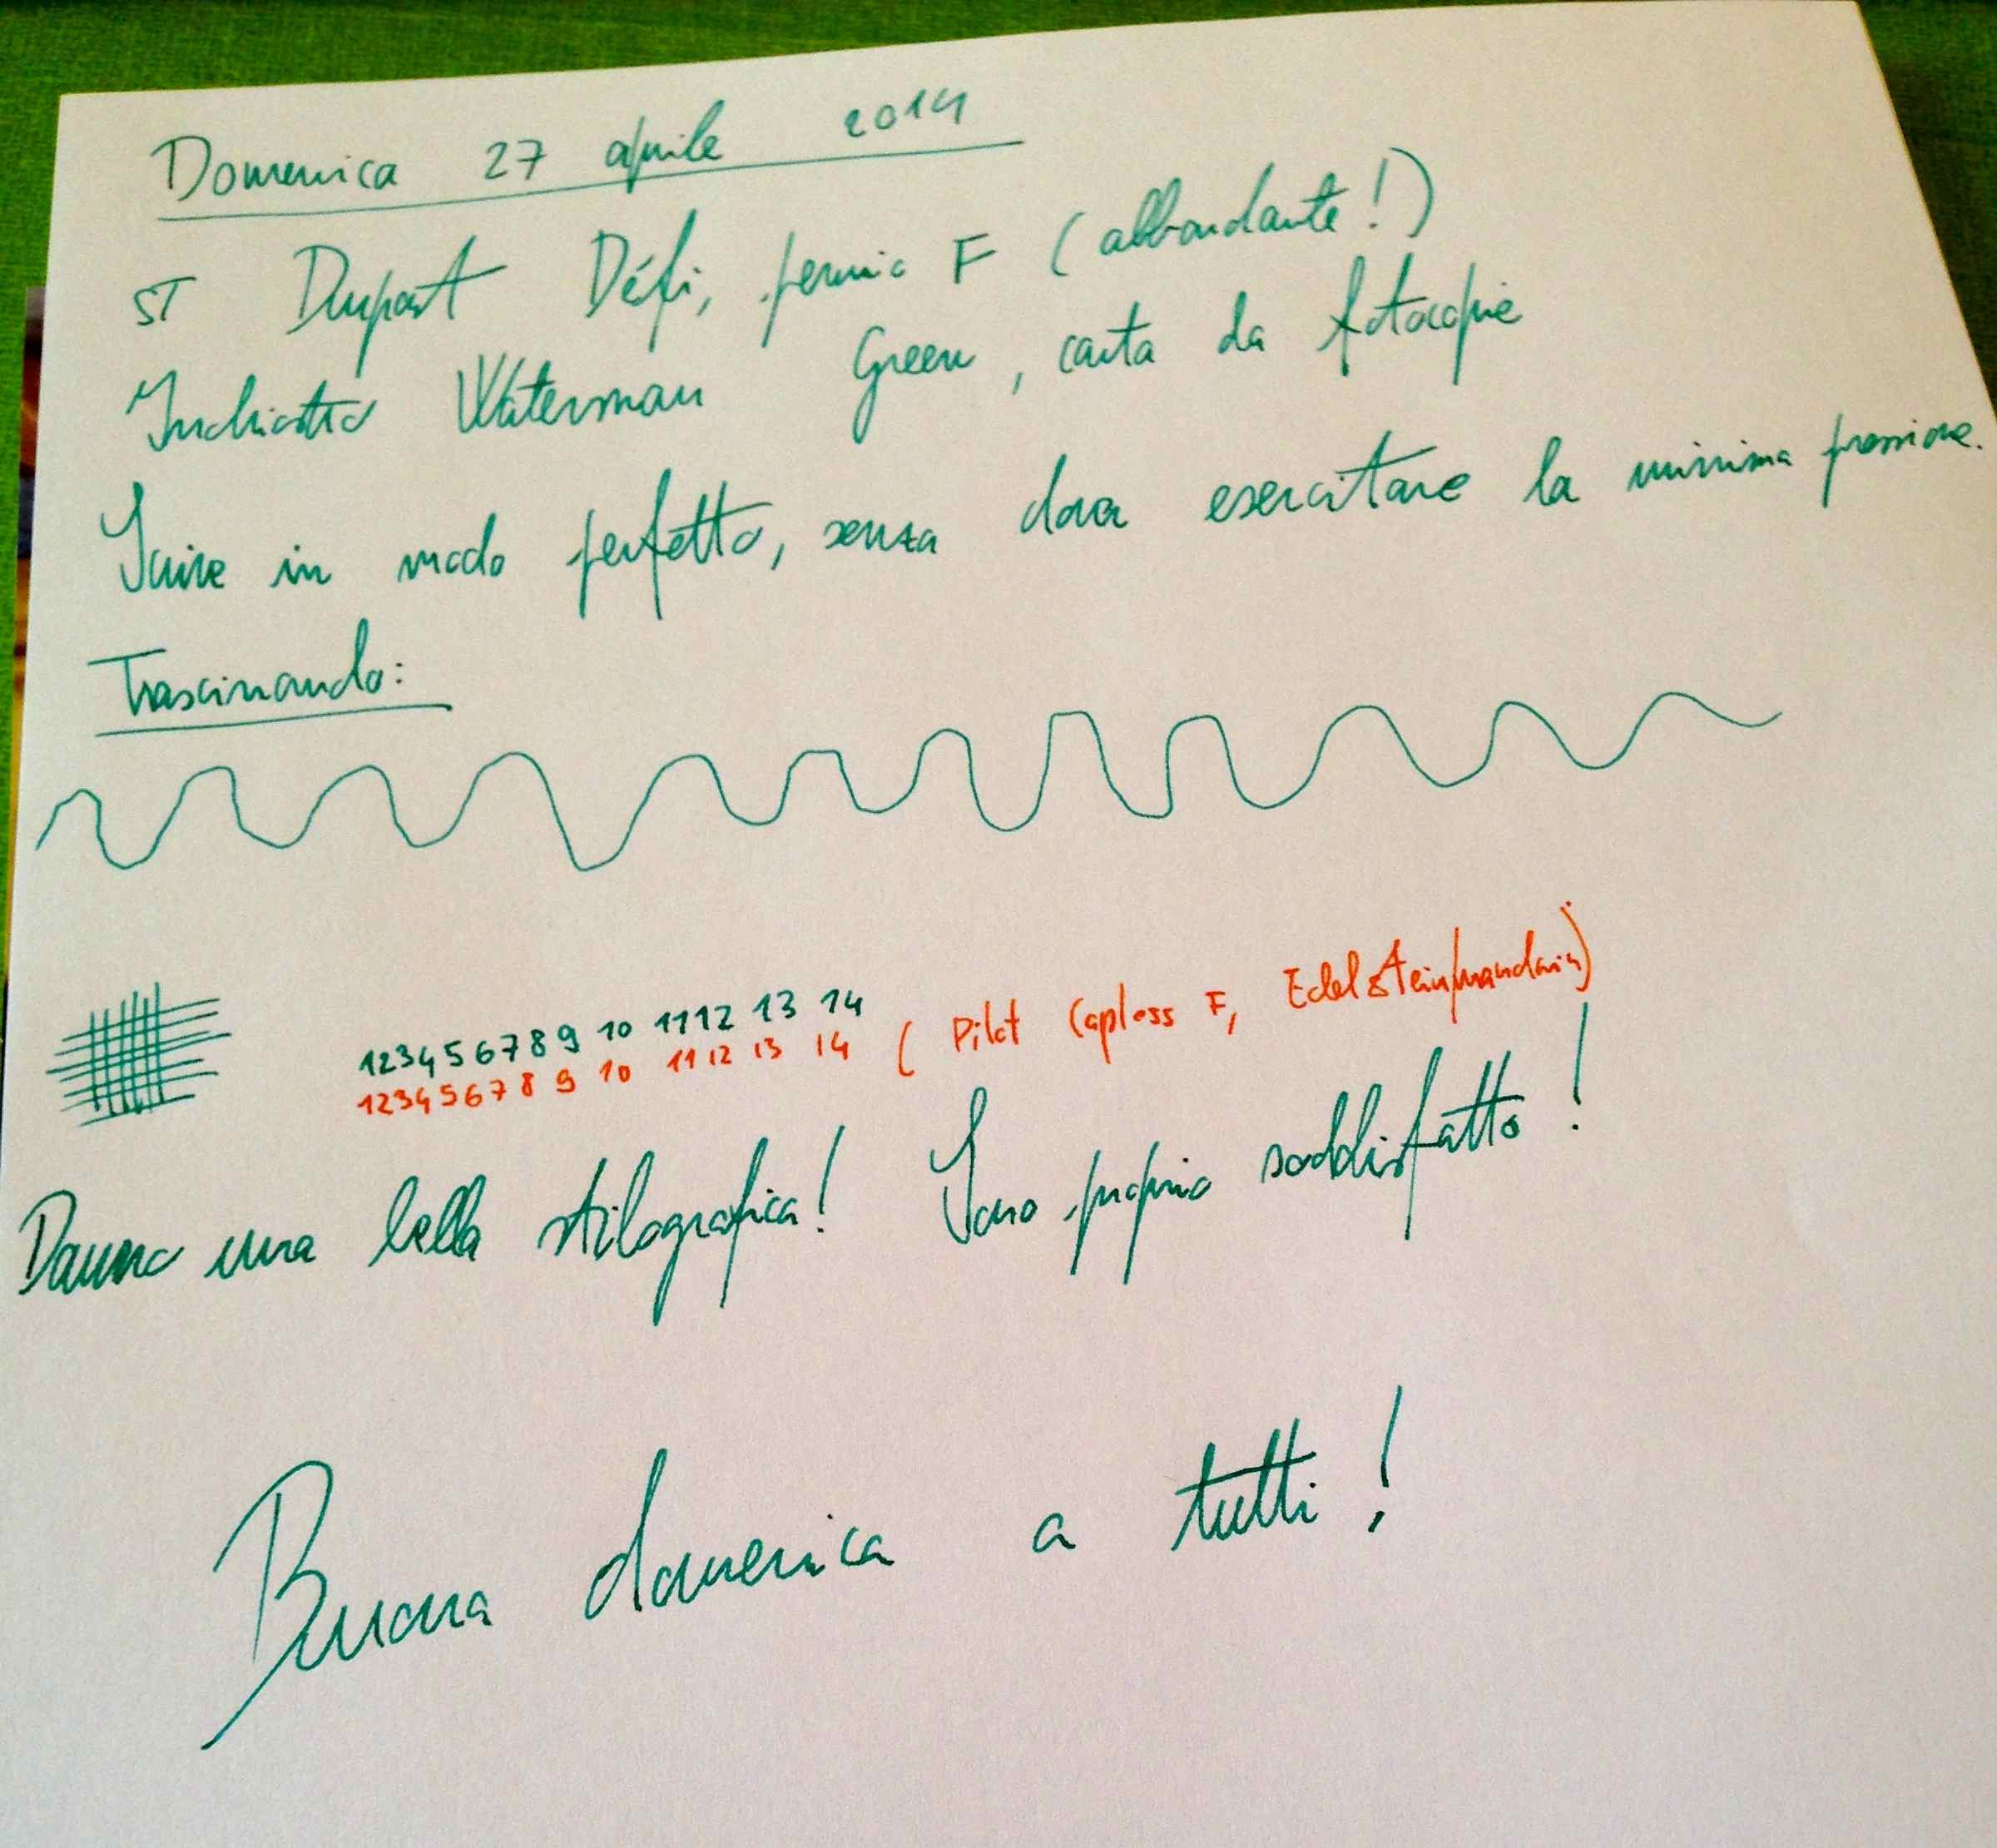 Domenica 27 aprile 2014
ST Dupont Défi, pennino F (abbondante!)
Inchiostro Waterman Green, carta da fotocopie
Scrive in modo perfetto, senza dover esercitare la minima pressione.
Trascinando:
1 2 3 4 5 6 7 8 9 10 11 12 13 14
1 2 3 4 5 6 7 8 9 10 11 12 13 14 (Pilot Capless F, Edelstein mandarin)
Davvero una bella stilografica! Sono proprio soddisfatto!
Buona domenica a tutti!